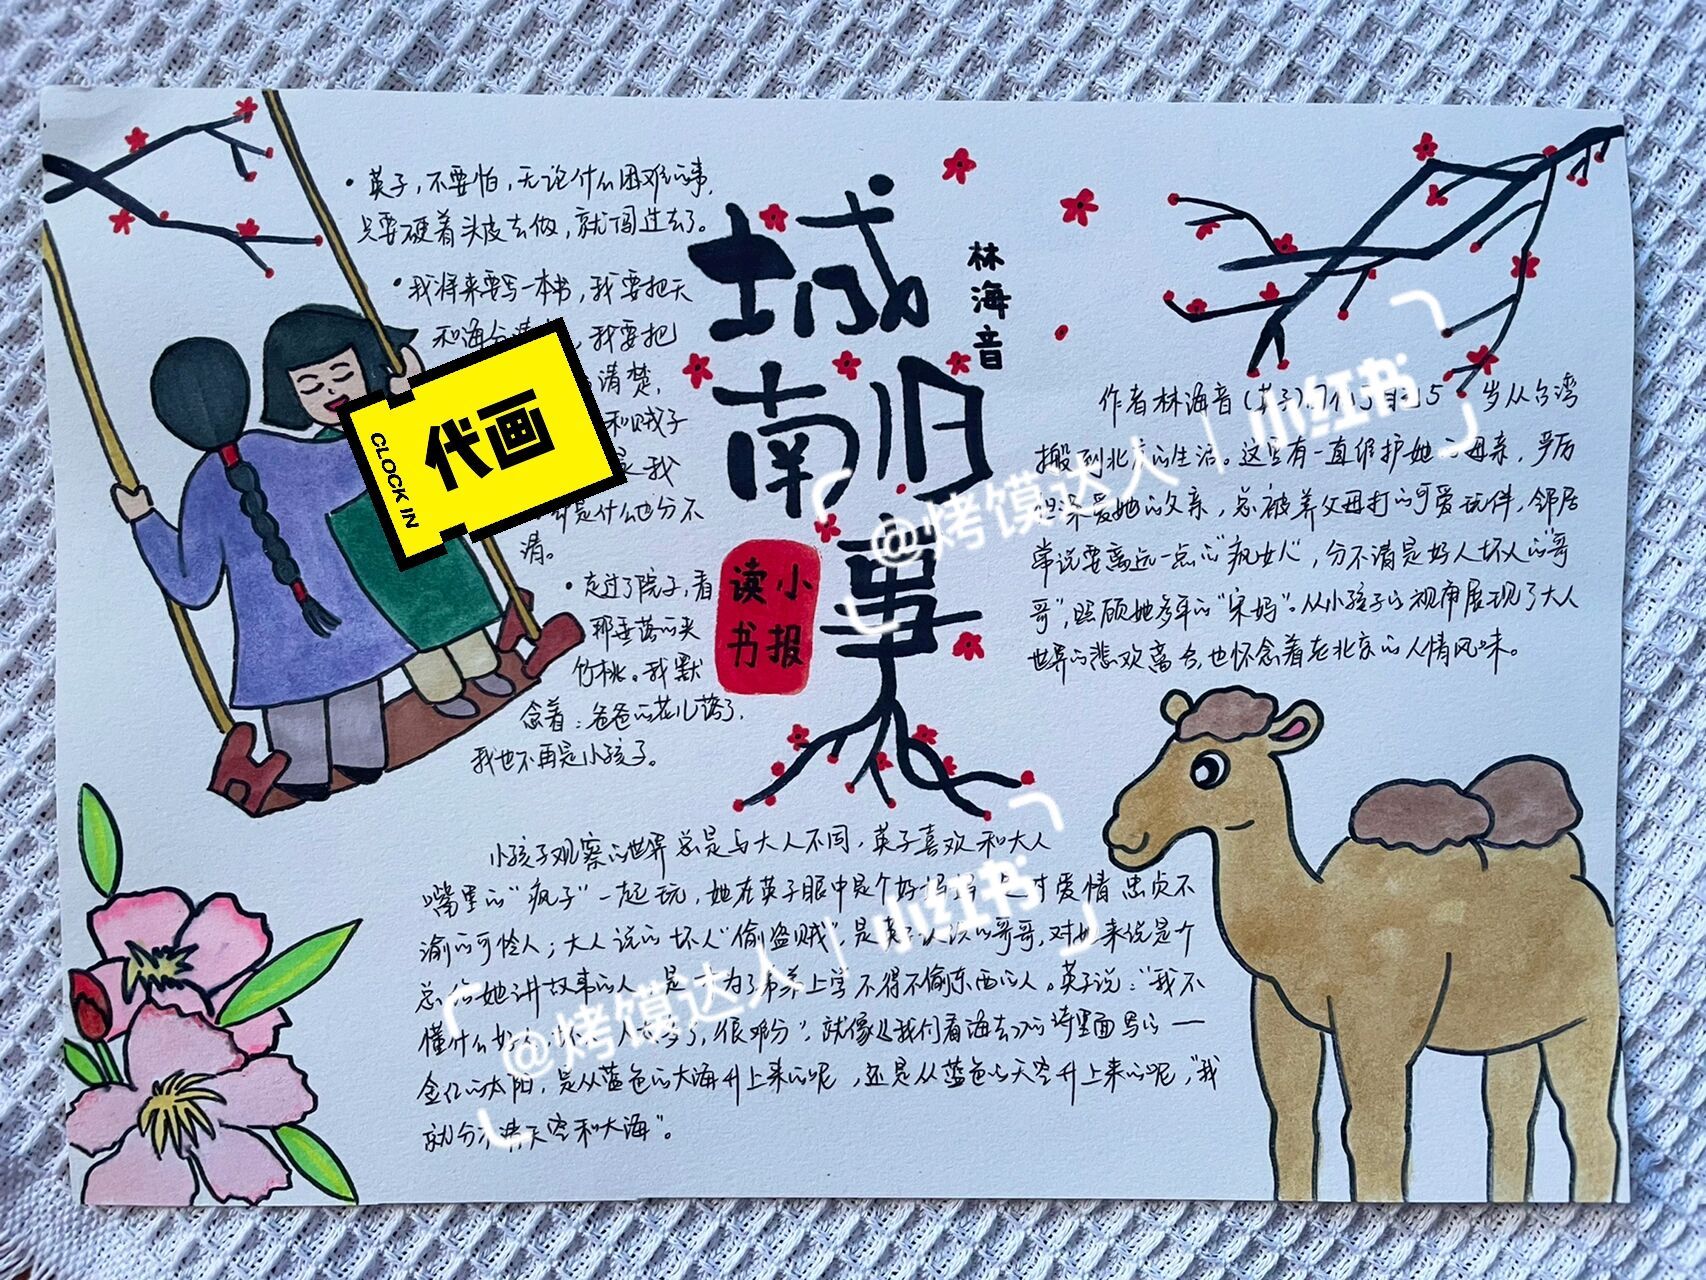 城南旧事
林海音
读书小报
• 英子，不要怕，无论什么困难的事，
只要硬着头皮去做，就闯过去了。
• 我将来要写一本书，我要把天
和海分清，我要把
清楚，
和贼子
我
是什么也分不
清。
• 走过了院子，看
那垂落的夹
竹桃。我默
念着：爸爸的花儿落了，
我也不再是小孩子。
代画
CLOCK IN
作者林海音(英子)5岁从台湾
搬到北京的生活。这里有一直维护她的母亲，严厉
但深爱她的父亲，总被养父母打的可爱玩伴，邻居
常说要离远一点的"疯女人"，分不清是好人坏人的"哥
哥"，照顾她多年的"宋妈"。从小孩子的视角展现了大人
世界的悲欢离合，也怀念着老北京的人情风味。
小孩子观察的世界总是与大人不同，英子喜欢和大人
嘴里的"疯子"一起玩，她在英子眼中是个好妈妈，对爱情忠贞不
渝的可怜人；大人说的坏人"偷盗贼"，是英子认识的哥哥，对她来说是个
总给她讲故事的人，是为了弟弟上学不得不偷东西的人。英子说："我不
懂什么好人，坏人，人太多了，很难分"。就像《我们看海去》的诗里面写的——
金红的太阳，是从蓝色的大海升上来的呢，还是从蓝色的天空升上来的呢，"我
就分不清天空和大海"。
@烤馍达人 | 小红书
@烤馍达人 | 小红书